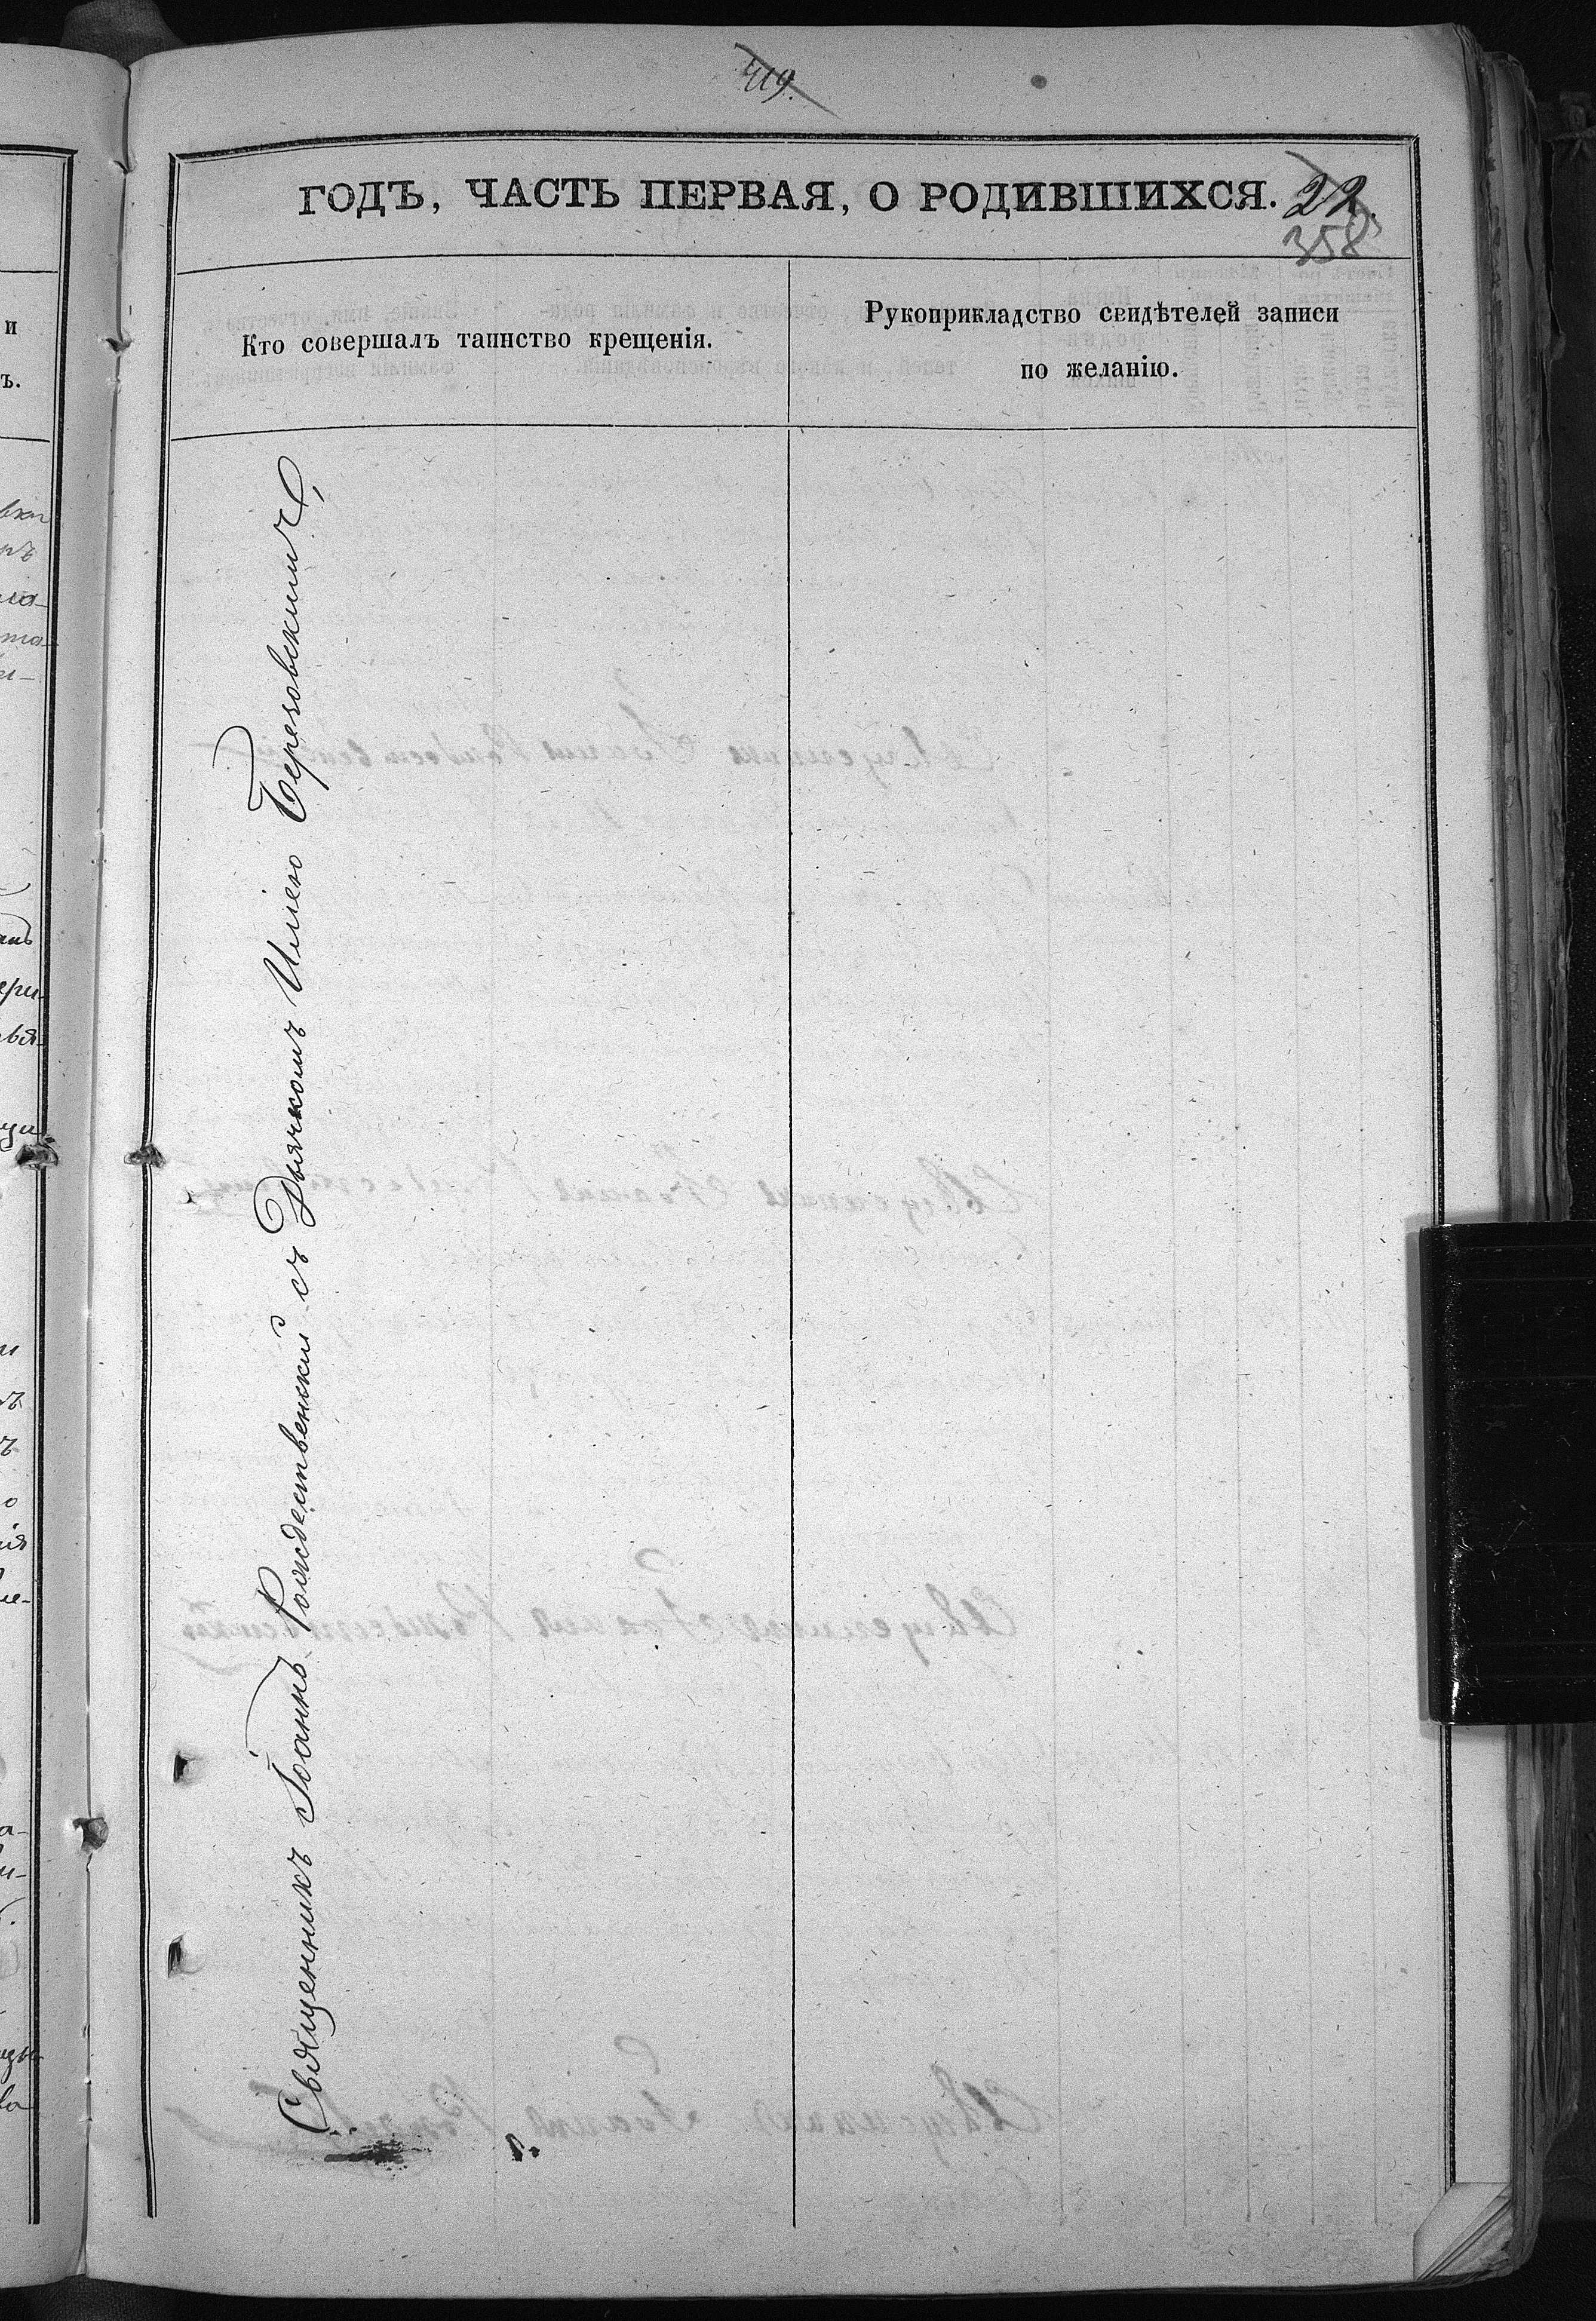 419.
ГОДЪ, ЧАСТЬ ПЕРВАЯ, О РОДИВШИХСЯ. 22.
358
Кто совершалъ таинство крещенія.
Рукоприкладство свидѣтелей записи
по желанію.
Священникъ Іоаннъ Рождественскій съ Дьячкомъ Иліею Березовскимъ